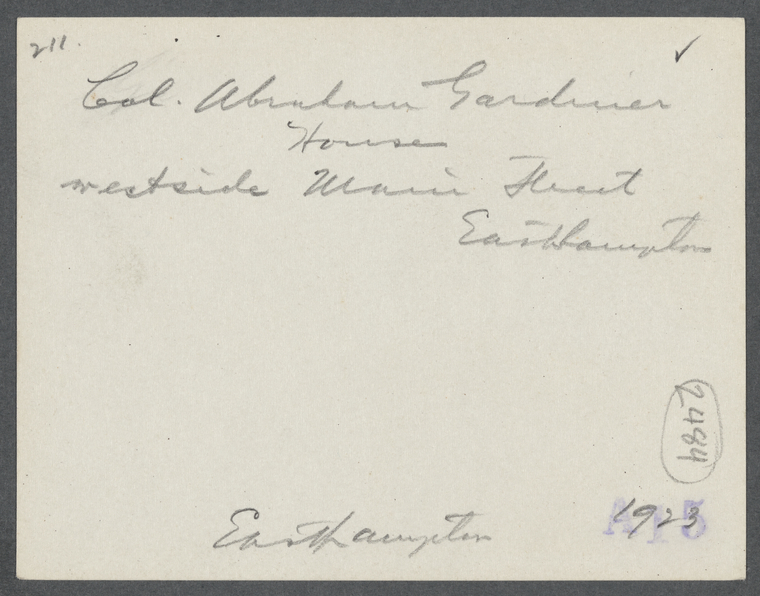 211.
✓
Col. Abraham Gardiner
House
westside Main Street
Easthampton
2484
Easthampton
1923